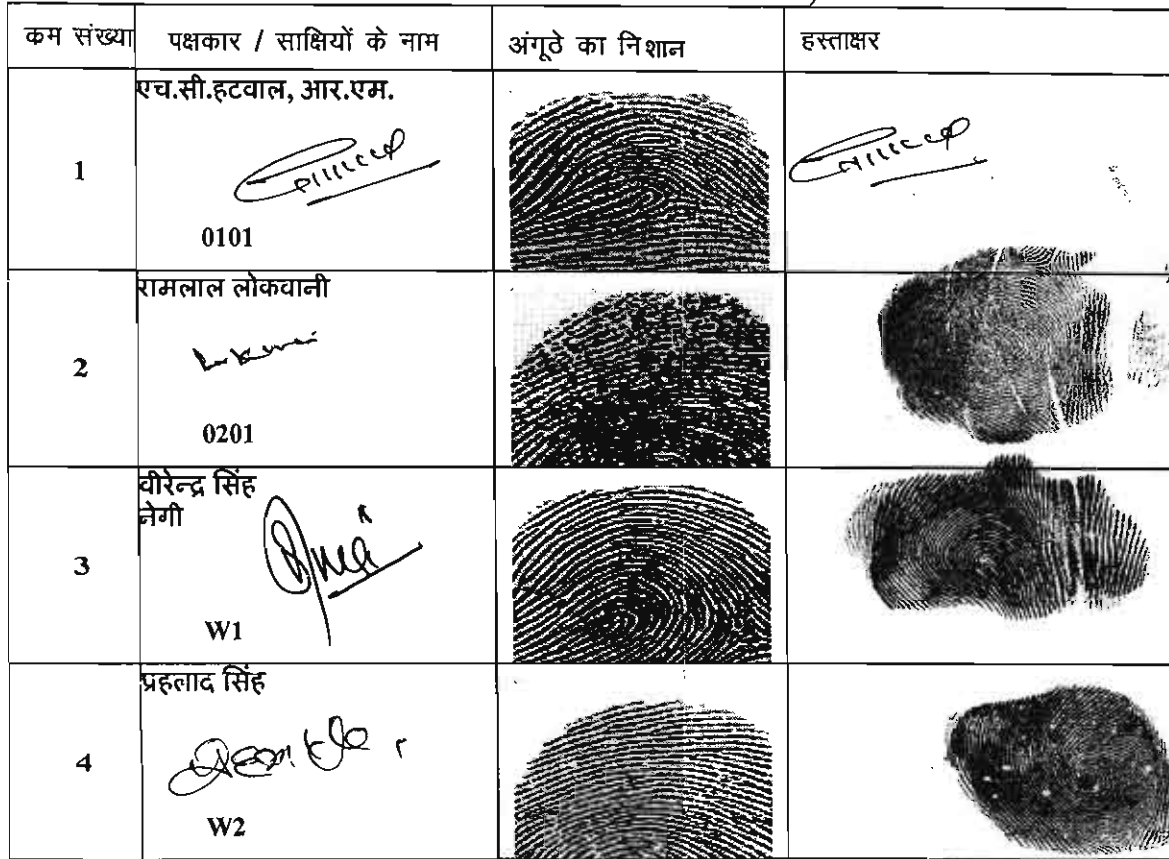 कम संख्या पक्षकार / साक्षियों के नाम अंगूठे का निशान हस्ताक्षर
एच.सी.हटवाल, आर.एम.
1
0101
रामलाल लोकवानी
2
0201
वीरेन्द्र सिंह
नेगी
3
W1
प्रहलाद सिंह
4
W2